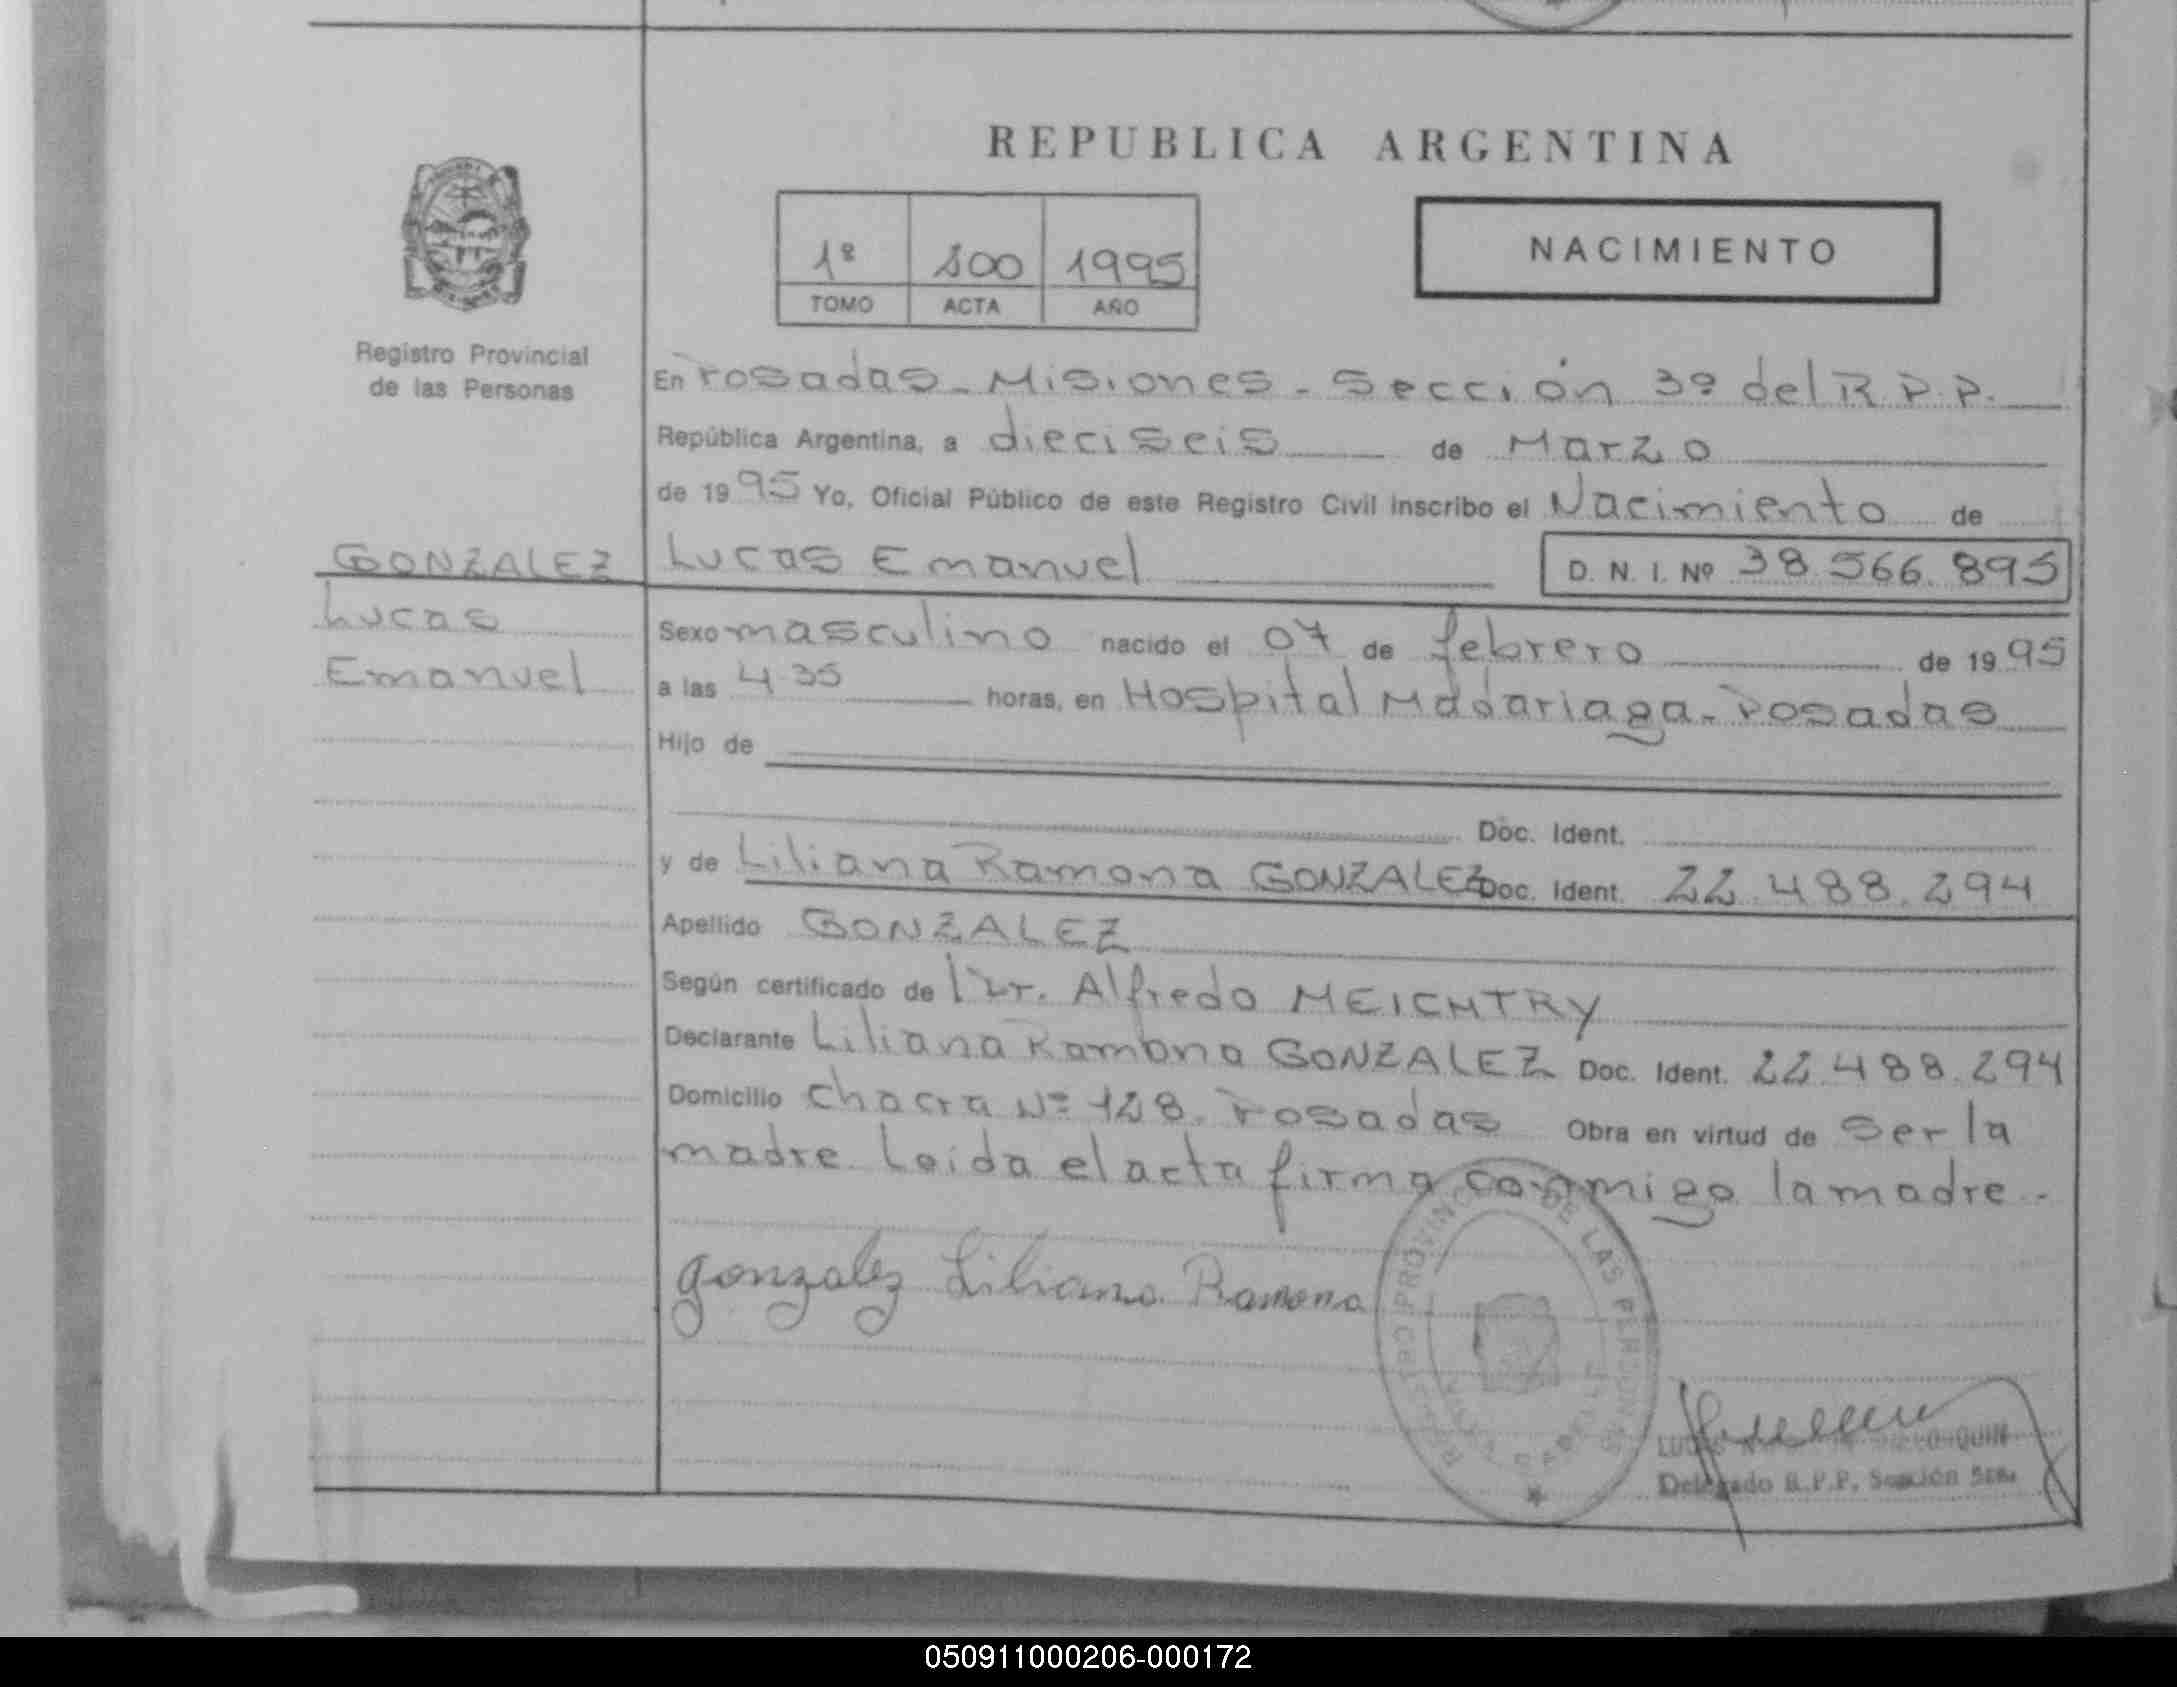 REPUBLICA ARGENTINA
1º 100 1995
TOMO ACTA AÑO
NACIMIENTO
Registro Provincial
de las Personas
En Posadas - Misiones - Sección 3º del R.P.P.
República Argentina, a dieciseis de Marzo
de 1995 Yo, Oficial Público de este Registro Civil inscribo el Nacimiento de
GONZALEZ
Lucas
Emanuel
Lucas Emanuel D. N. I. Nº 38.566.895
Sexo masculino nacido el 07 de febrero de 1995
a las 4.35 horas, en Hospital Madariaga - Posadas
Hijo de
Doc. Ident.
y de Liliana Ramona GONZALEZ Doc. Ident. 22.488.294
Apellido GONZALEZ
Según certificado de Dr. Alfredo MEICHTRY
Declarante Liliana Ramona GONZALEZ Doc. Ident. 22.488.294
Domicilio Chacra Nº 128. Posadas Obra en virtud de ser la
madre. Leida el acta firma conmigo la madre.
Gonzalez Liliana Ramona
REGISTRO PROVINCIAL DE LAS PERSONAS
Delegado R.P.P. Sección
050911000206-000172